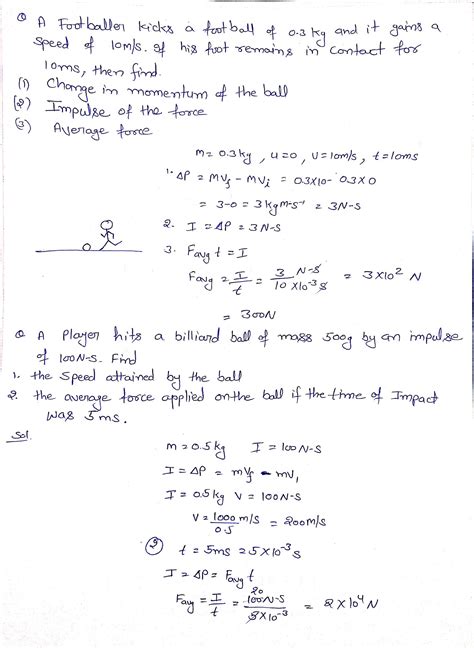 Q A Footballer kicks a football of 0.3 kg and it gains a
speed of 10m/s. If his foot remains in contact for
10ms, then find.
(1) Change in momentum of the ball
(2) Impulse of the force
(3) Average force
m = 0.3kg, u=0, v=10m/s, t=10ms
1. ΔP = mVf - mVi = 0.3X10 - 0.3X0
= 3-0 = 3 kg m-s⁻¹ = 3N-S
2. I = ΔP = 3N-S
3. Favg t = I
Favg = I/t = 3 N-S/10 X10⁻³ S = 3X10² N
= 300N
Q A Player hits a billiard ball of mass 500g by an impulse
of 100N-S. Find
1. the Speed attained by the ball
2. the average force applied on the ball if the time of Impact
was 5ms.
Sol.
m = 0.5kg I = 100N-S
I = ΔP = mVf - mVi
I = 0.5kg V = 100N-S
V = 1000 m/s/0.5 = 200m/s
(2) t = 5ms = 5X10⁻³ s
I = ΔP = Favg t
Favg = I/t = 20 100N-S/5X10⁻³ = 2X10⁴ N